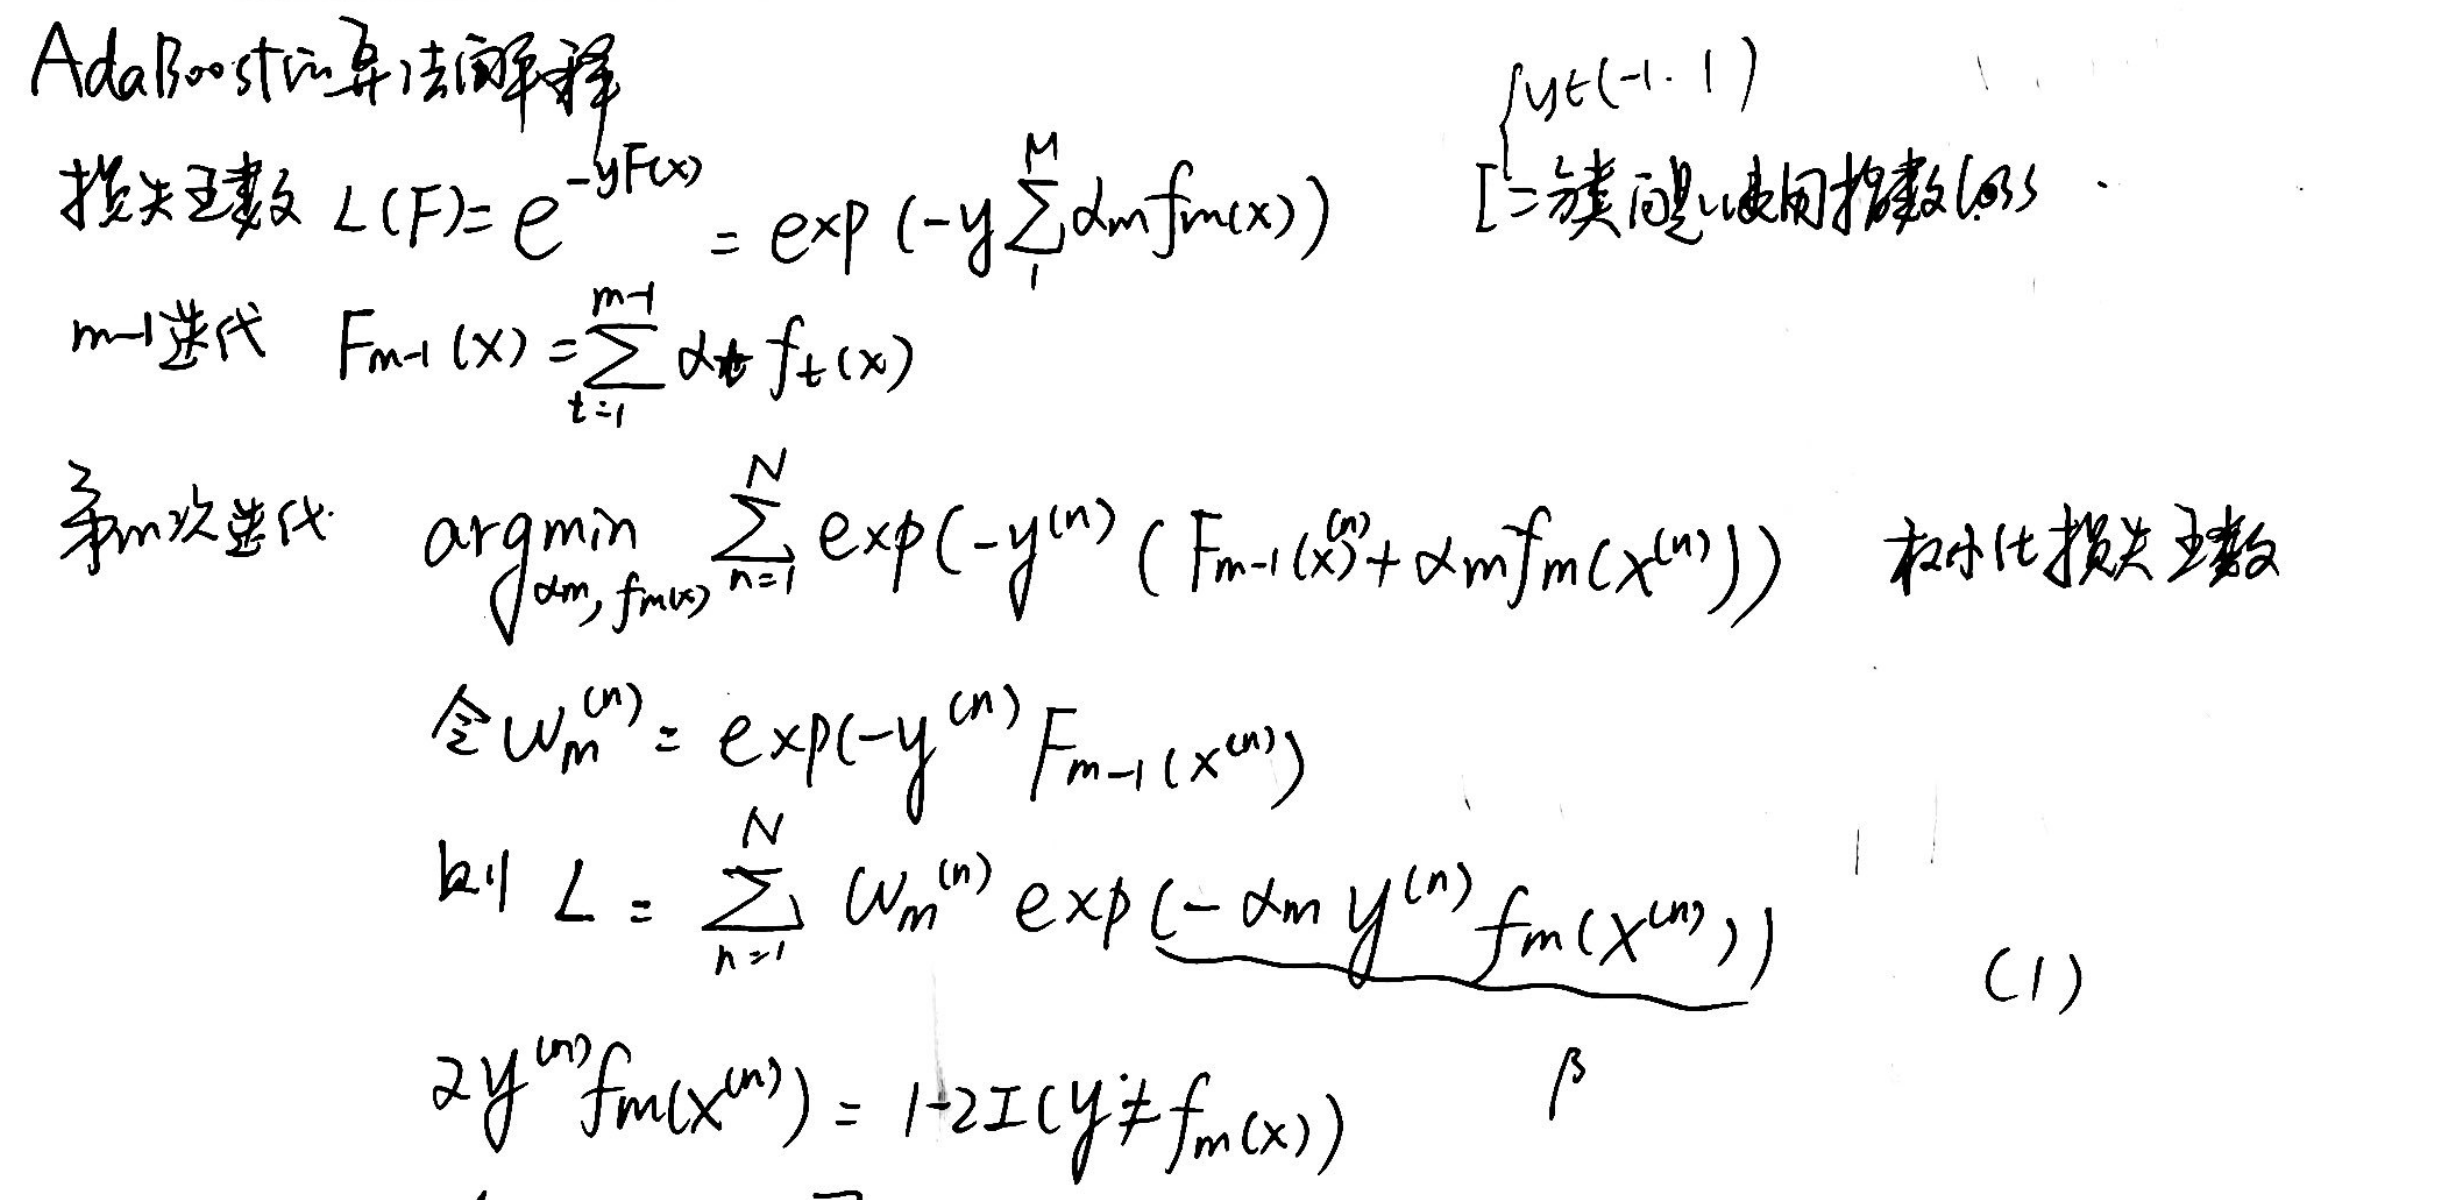 AdaBoost的算法解释
{y∈(-1. 1)
损失函数 L(F)= e^{-yF(x)} = exp (-y∑_{1}^{M} αm fm(x)) [二分类问题,使用指数loss
m-1迭代 F_{m-1}(x) = ∑_{t=1}^{m-1} αt f_t(x)
第m次迭代 argmin_{αm, fm(x)} ∑_{n=1}^{N} exp(-y^{(n)} (F_{m-1}(x^{(n)})+ αm fm(x^{(n)}))) 极小化损失函数
令 w_m^{(n)} = exp(-y^{(n)} F_{m-1}(x^{(n)})
则 L = ∑_{n=1}^{N} w_m^{(n)} exp(- αm y^{(n)} fm(x^{(n)})) (1)
β
2y^{(n)} fm(x^{(n)}) = 1-2I(y≠fm(x))